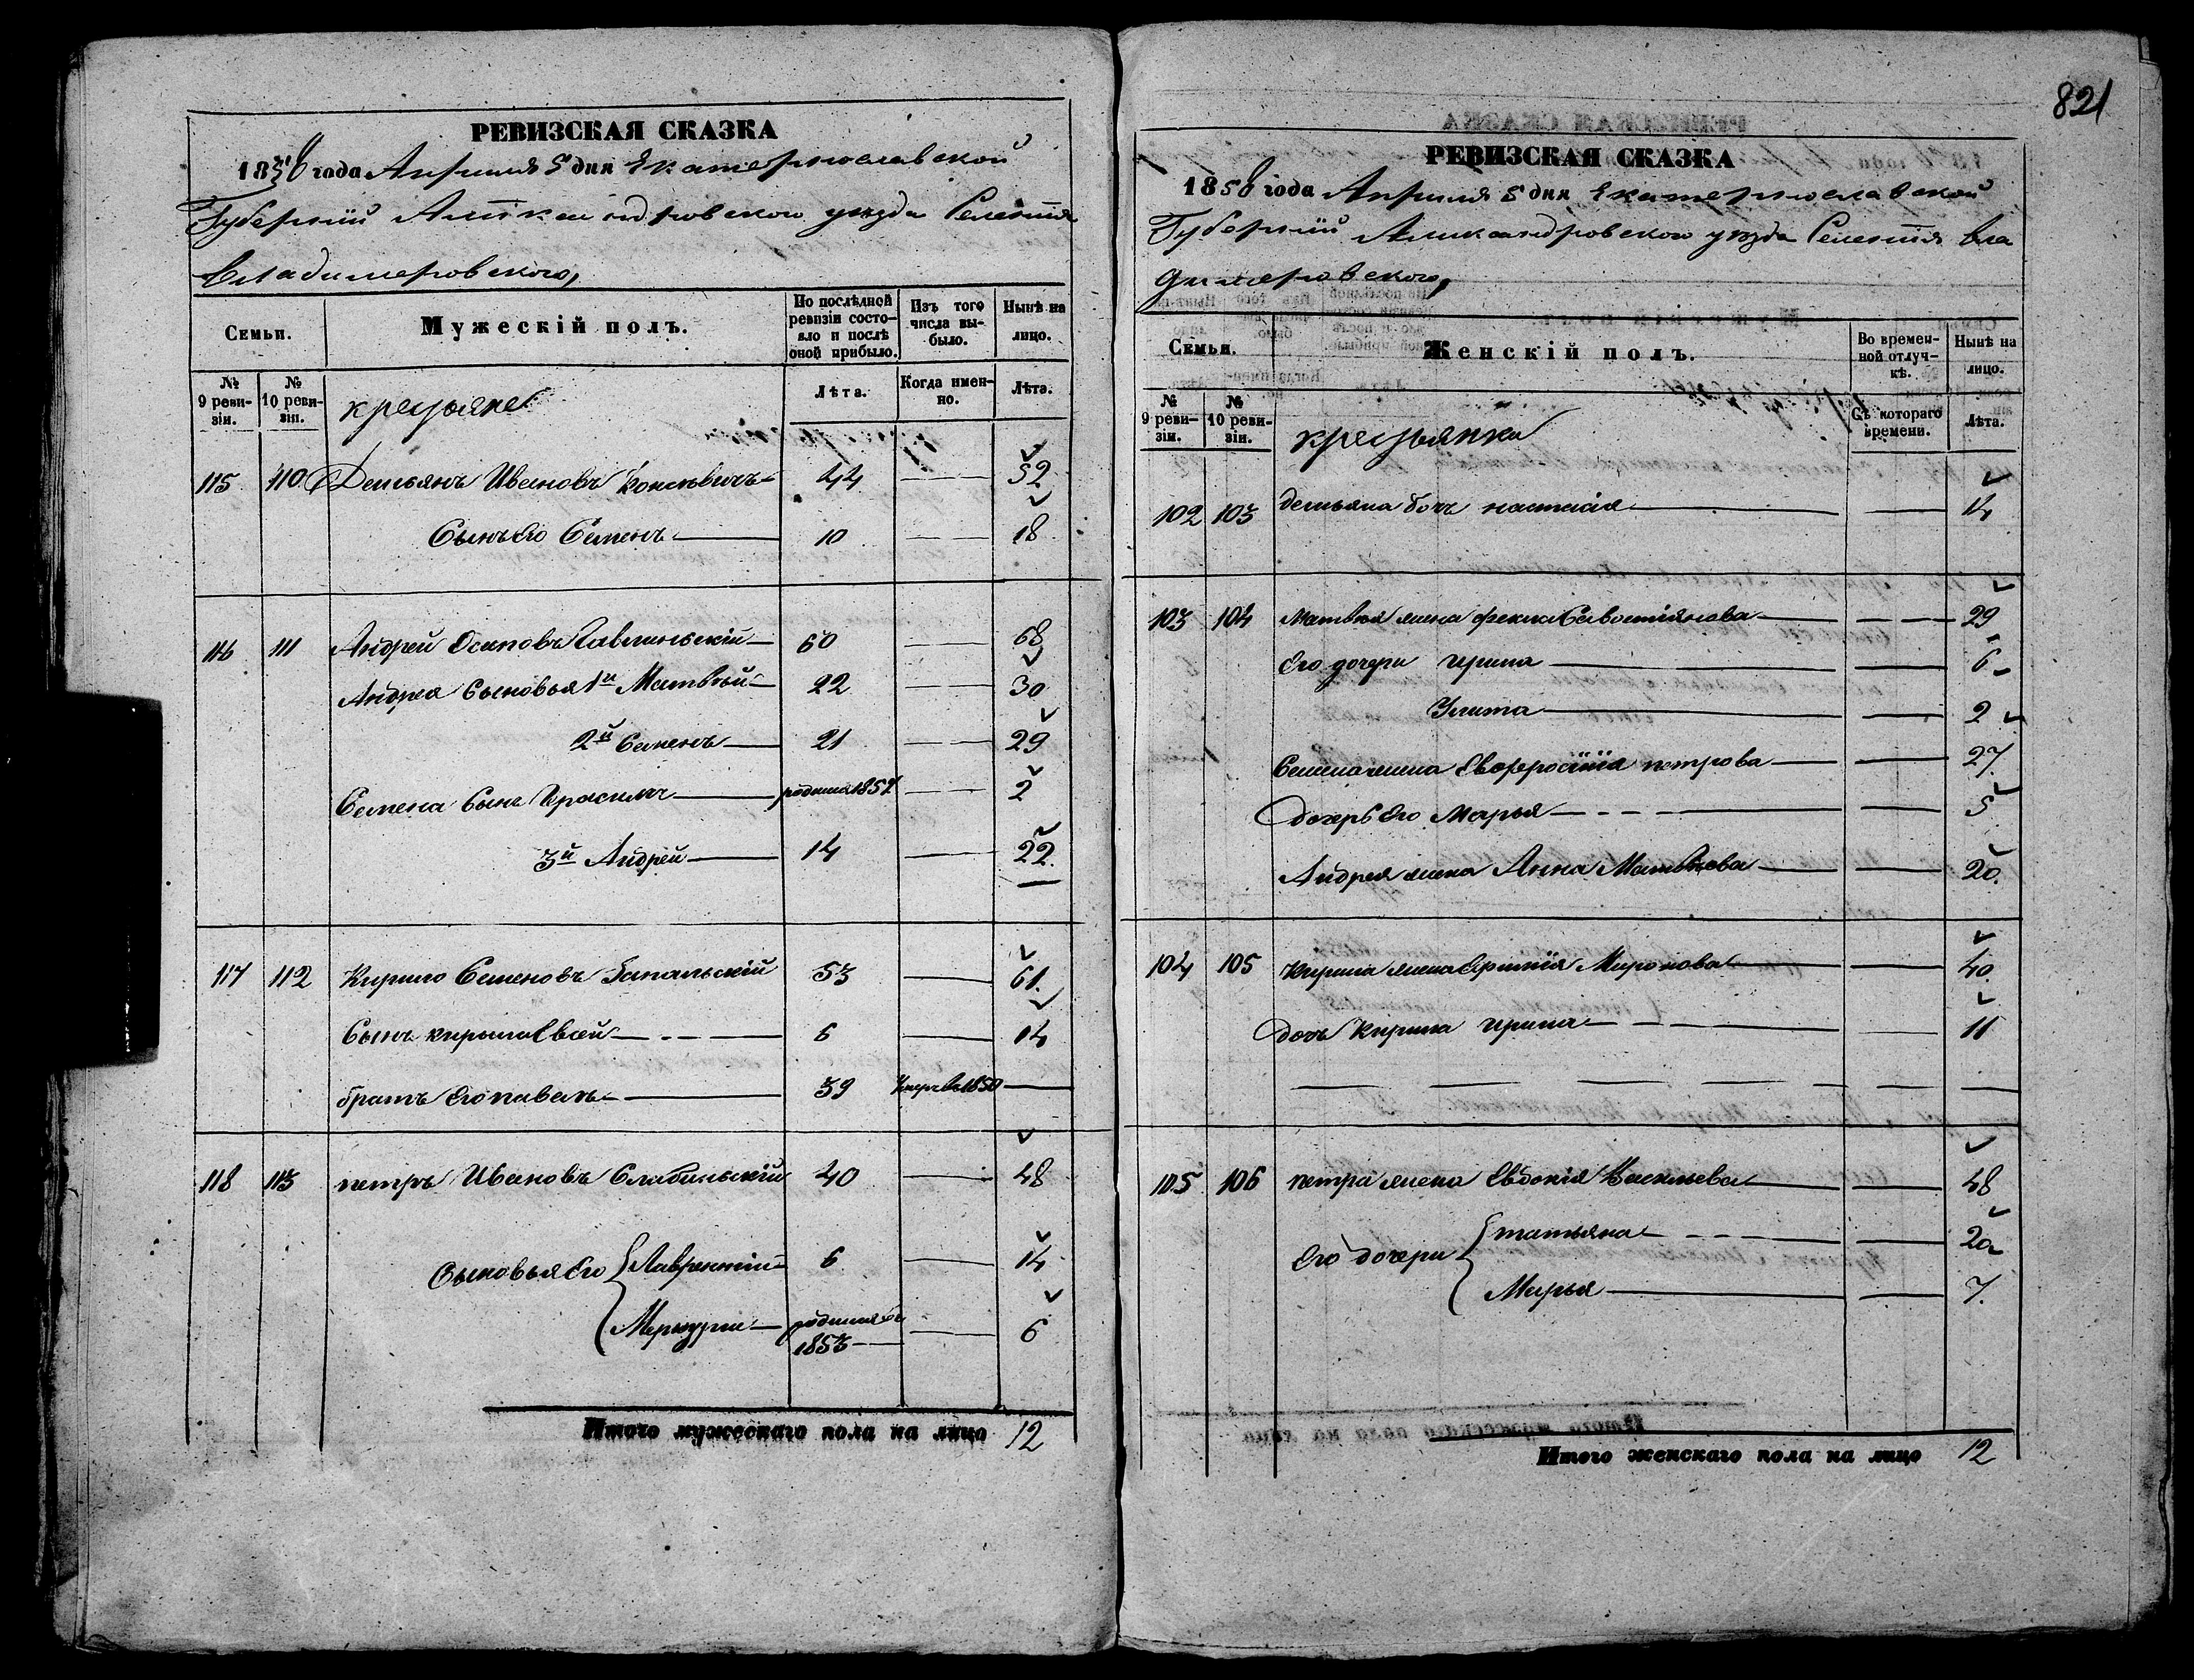 821
РЕВИЗСКАЯ СКАЗКА
1858 года Апреля 5 дня Екатеринославской
Губернии Александровского уезда Селения
Владимеровского,
Семьи.
Мужескій полъ.
По послѣдней ревизіи состояло и послѣ оной прибыло.
Изъ того числа выбыло.
Нынѣ на лицо.
№ 9 ревизіи.
№ 10 ревизіи.
крестьяне
Лѣта.
Когда именно.
Лѣта.
115 110 Демьянъ Ивановъ 44 52
Сынъ его Семенъ 10 18
116 111 Андрей Осиповъ 60 68
Андрея Сыновья 1й Матвѣй 22 30
2й Семенъ 21 29
Семена Сынъ Герасимъ 2
3й Андрей 14 22.
117 112 Кирило Семеновъ 53 61.
Сынъ кирила Евсей 6 14
братъ его павелъ 39 1850
118 113 петръ Ивановъ Слабинскій 40 48
Сыновья его Лаврентій 6 14
Меркурій 1853 6
Итого мужескаго пола на лицо 12
РЕВИЗСКАЯ СКАЗКА
1858 года Апреля 5 дня Екатеринославской
Губернии Александровского уезда Селения Вла
димеровского,
Семьи.
Женскій полъ.
Во временной отлучкѣ.
Нынѣ на лицо.
№ 9 ревизіи.
№ 10 ревизіи.
крестьянки
Съ котораго времени.
Лѣта.
102 103 демьяна дочь настасія 14
103 104 Матвѣя жена фекла Савостіянова 29
Его дочери ирина 6
Улита 2
Семена жена Евфросинія петрова 27.
дочерь Его Марья 5
Андрея жена Анна Матвѣева 20.
104 105 Кирила жена Миронова 40.
дочь Кирила ирина 11
105 106 петра жена Евдокія Васильева 48
Его дочери татьяна 20
Марья 7.
Итого женскаго пола на лицо 12